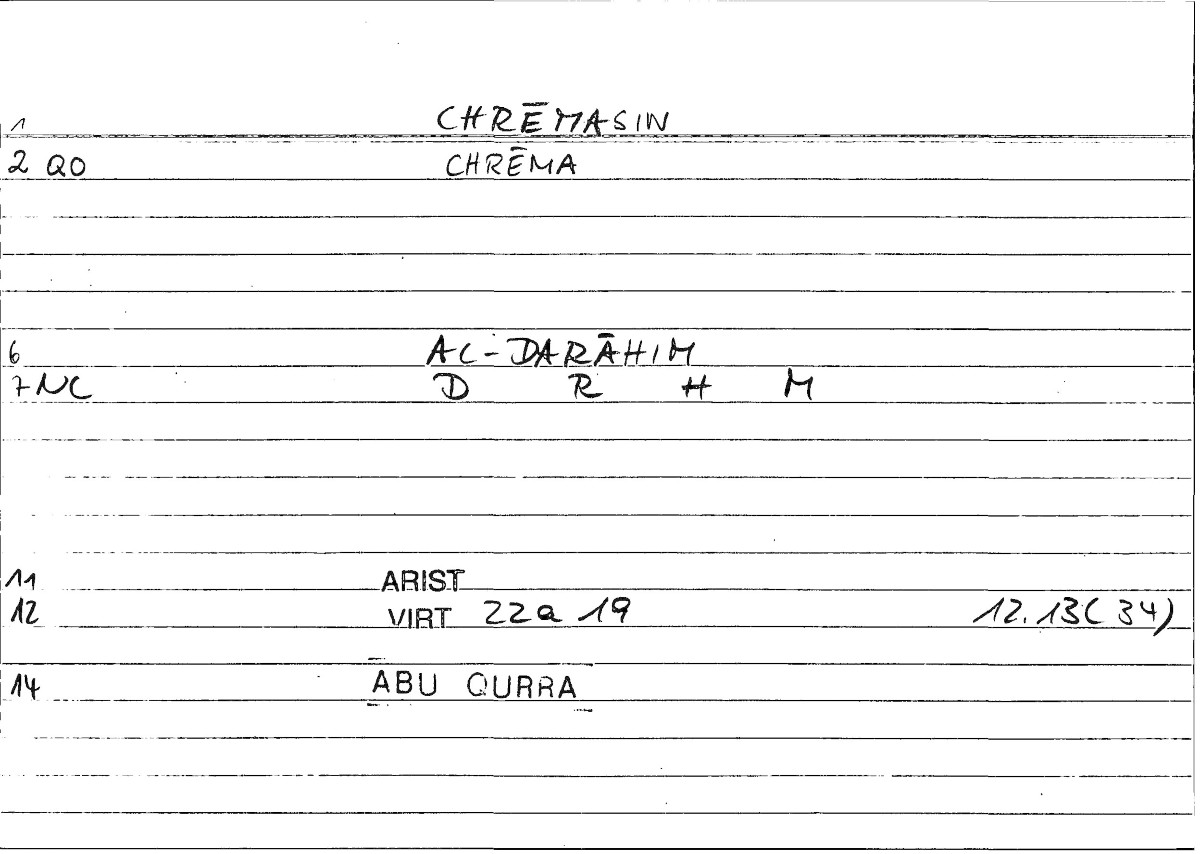 1 CHRĒMASIN
2 QO CHRĒMA
6 AL-DARĀHIM
7 NC D R H M
11 ARIST
12 VIRT 22a 19 12.13(34)
14 ABU QURRA